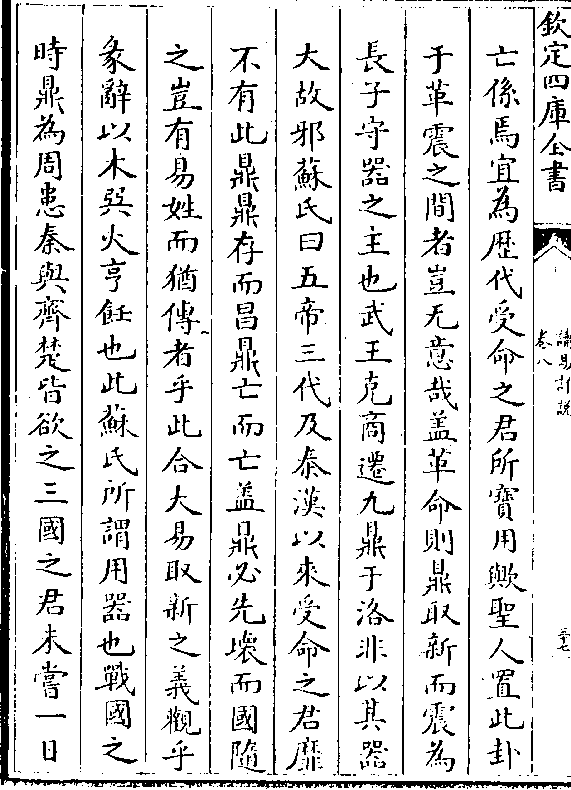 欽定四庫全書
讀易詳說
卷八
三十七
亡係焉宜為歴代受命之君所寶用歟聖人置此卦
于革震之間者豈无意哉盖革命則鼎取新而震為
長子守器之主也武王克商遷九鼎于洛非以其器
大故邪蘇氏曰五帝三代及秦漢以來受命之君靡
不有此鼎鼎存而昌鼎亡而亡盖鼎必先壊而國隨
之豈有易姓而猶傳者乎此合大易取新之義觀乎
彖辭以木㢲火亨飪也此蘇氏所謂用器也戰國之
時鼎為周患秦與齊楚皆欲之三國之君未嘗一日